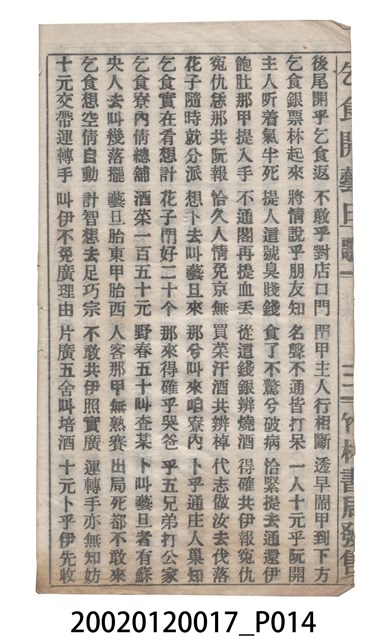 乞食開藝旦歌
三
竹林書局發售
後尾開乎乞食返 不敢乎對店口門 閙甲主人行相斷 透早閙甲到下方
乞食銀票林起來 將情說乎朋友知 名聲不通皆打呆 一人十元乎阮開
主人听着氣半死 提人這號臭賤錢 食了不驚兮破病 恰緊提去通還伊
飽肚那甲提入手 不通閣再提血丟 從這錢銀辨燒酒 得確共伊報寃仇
寃仇恁那共阮報 恰久人情免京無 買菜汗酒共辨棹 代志做汝去伐落
花子隨時就分派 想卜去叫藝旦來 那兮叫來咱寮內 卜乎通庄人巢知
乞食實在看想計 花子鬥好二十个 那來得確乎哭爸 乎五兄弟打公家
乞食寮內倩總舖 酒菜一百五十元 野春五十叫查某 卜叫藝旦者有蘇
央人去叫幾落擺 藝旦胎東甲胎西 人客那甲無熟賽 出局死都不敢來
乞食想空倩自動 計智想去足巧宗 不敢共伊照實廣 運轉手亦無知妨
十元交帶運轉手 叫伊不免廣理由 片廣五舍叫培酒 十元卜乎伊先收
20020120017_P014